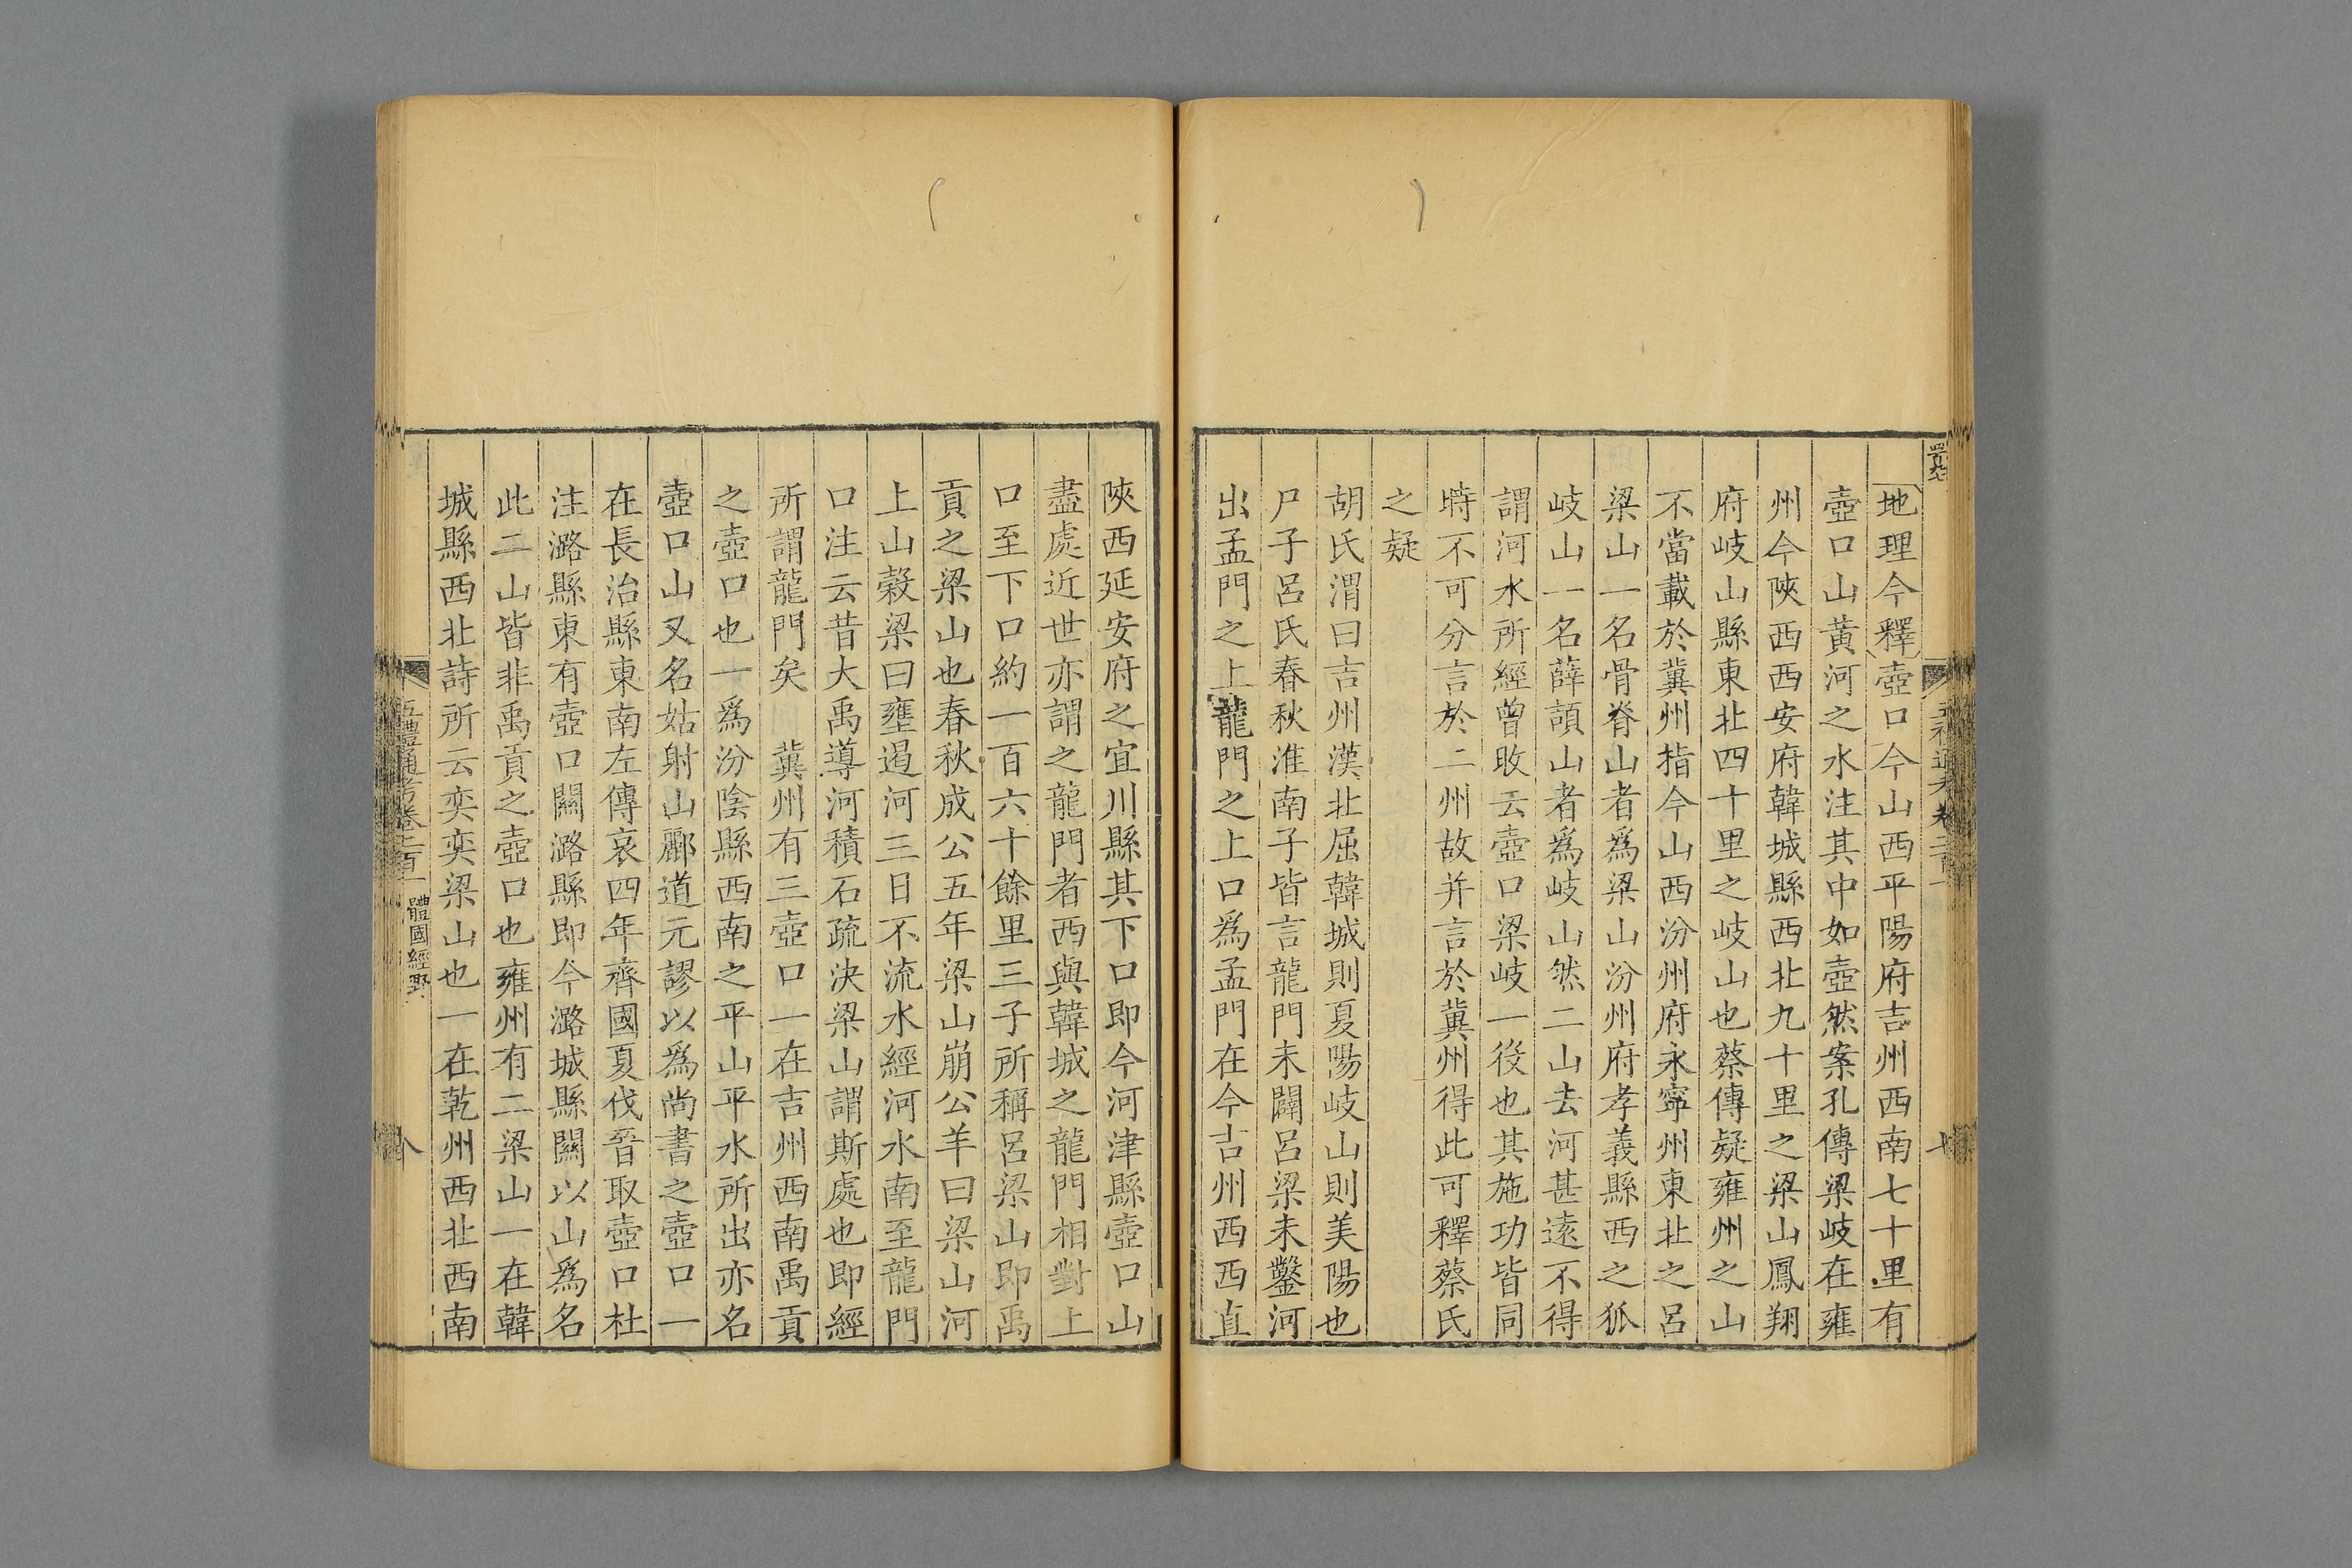 地理今釋壺口今山西平陽府吉州西南七十里有
壺口山黃河之水注其中如壺然案孔傳梁岐在雍
州今陝西西安府韓城縣西北九十里之梁山鳳翔
府岐山縣東北四十里之岐山也蔡傳疑雍州之山
不當載於冀州指今山西汾州府永寧州東北之呂
梁山一名骨脊山者爲梁山汾州府孝義縣西之狐
岐山一名薛頡山者爲岐山然二山去河甚遠不得
謂河水所經曾旼云壺口梁岐一役也其施功皆同
時不可分言於二州故并言於冀州得此可釋蔡氏
之疑
胡氏渭曰吉州漢北屈韓城則夏陽岐山則美陽也
尸子呂氏春秋淮南子皆言龍門未闢呂梁未鑿河
出孟門之上龍門之上口爲孟門在今吉州西西直
陝西延安府之宜川縣其下口即今河津縣壺口山
盡處近世亦謂之龍門者西與韓城之龍門相對上
口至下口約一百六十餘里三子所稱呂梁山即禹
貢之梁山也春秋成公五年梁山崩公羊曰梁山河
上山榖梁曰壅遏河三日不流水經河水南至龍門
口注云昔大禹導河積石疏決梁山謂斯處也即經
所謂龍門矣　冀州有三壺口一在吉州西南禹貢
之壺口也一爲汾陰縣西南之平山平水所出亦名
壺口山又名姑射山酈道元謬以爲尚書之壺口一
在長治縣東南左傳哀四年齊國夏伐晉取壺口杜
注潞縣東有壺口關潞縣即今潞城縣關以山爲名
此二山皆非禹貢之壺口也雍州有二梁山一在韓
城縣西北詩所云奕奕梁山也一在乾州西北西南
五禮通考卷二百一　體國經野
八